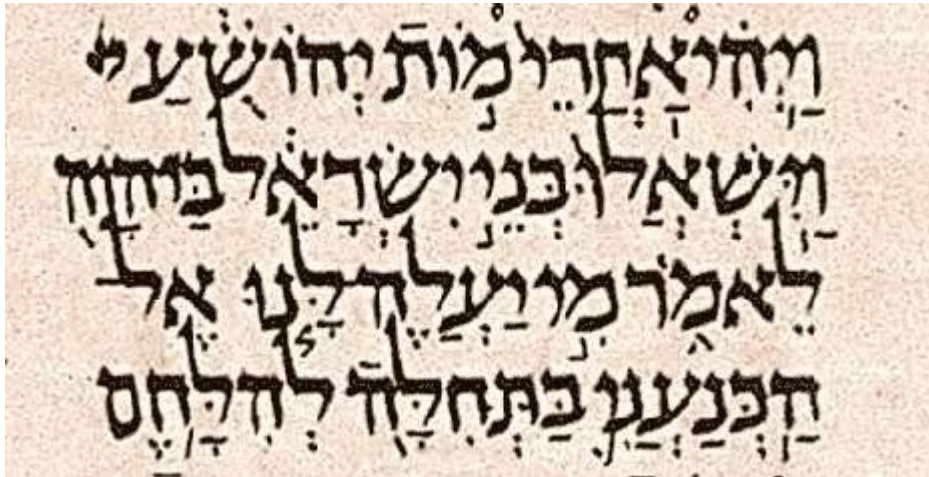 וַיְהִ֗י אַחֲרֵי֙ מ֣וֹת יְהוֹשֻׁ֔עַ
וַֽיִּשְׁאֲלוּ֙ בְּנֵ֣י יִשְׂרָאֵ֔ל בַּיהוָ֖ה
לֵאמֹ֑ר מִ֣י יַעֲלֶה לָּ֧נוּ אֶל
הַֽכְּנַעֲנִ֛י בַּתְּחִלָּ֖ה לְהִלָּ֥חֶם